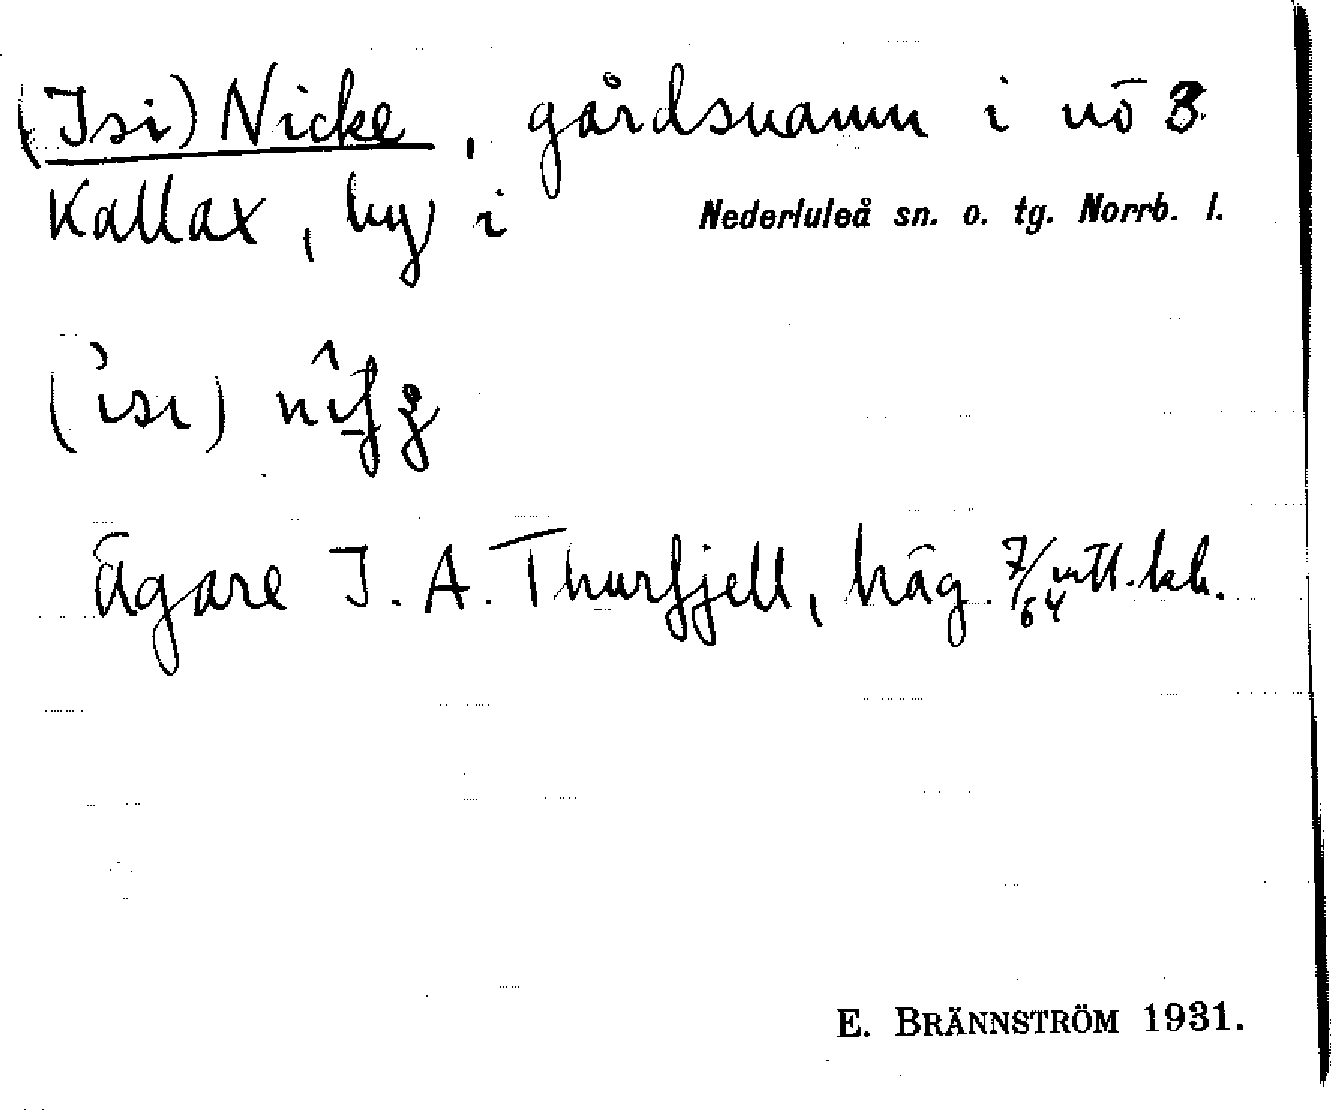 (Isi) Nicke, gårdsnamn i nö 3
Kallax, by i Nederluleå sn. o. tg. Norrb. l.
(isi)
Ägare J. A. Thurfjell, häg. 7/64 mtl. kh.
E. BRÄNNSTRÖM 1931.